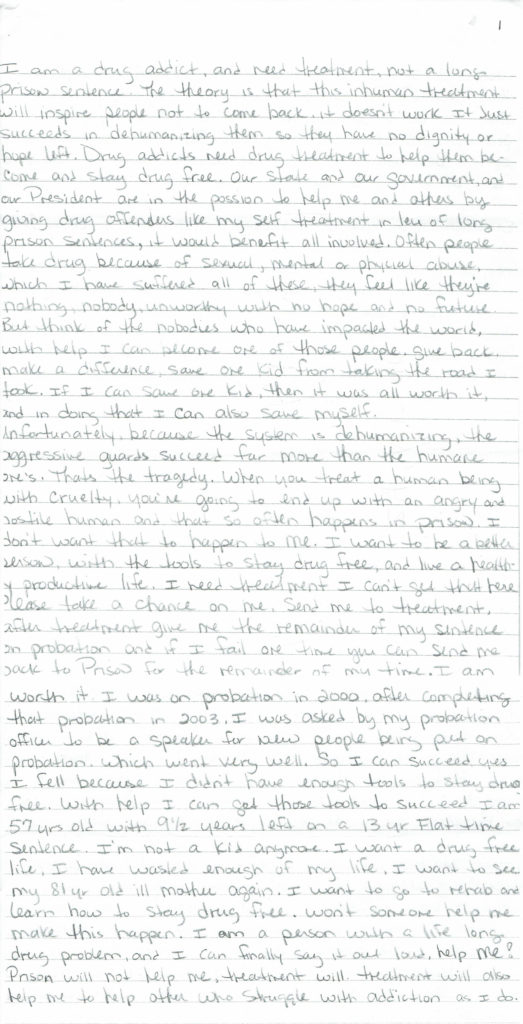 1
I am a drug addict, and need treatment, not a long
Prison sentence. The theory is that this inhuman treatment
will inspire people not to come back, it doesn't work It Just
succeeds in dehumanizing them so they have no dignity or
hope left. Drug addicts need drug treatment to help them be-
come and stay drug free. Our State and our government, and
our President are in the possion to help me and others by
giving drug offenders like my self treatment in leu of long
prison sentences, it would benefit all involved. Often people
take drug because of sexual, mental or phyical abuse,
which I have suffered all of these, they feel like they're
nothing, nobody, unworthy with no hope and no future.
But think of the nobodies who have impacted the world,
with help I can become one of those people. give back.
make a difference, save one kid from taking the road I
took. If I can save one kid, then it was all worth it,
and in doing that I can also save myself.
Unfortunately, because the system is dehumanizing, the
aggressive guards succeed far more than the humane
one's. Thats the tragedy. When you treat a human being
with cruelty. you're going to end up with an angry and
hostile human and that so often happens in prison. I
don't want that to happen to me. I want to be a better
person, with the tools to stay drug free, and live a health-
y productive life. I need treatment I can't get that here
Please take a chance on me. Send me to treatment,
after treatment give me the remainder of my sentence
on probation and if I fail one time you can send me
back to Prison for the remainder of my time. I am
worth it. I was on probation in 2000. after completing
that probation in 2003. I was asked by my probation
officer to be a speaker for new people being put on
probation. which went very well. So I can succeed yes
I fell because I didn't have enough tools to stay drug
free. With help I can get those tools to succeed I am
57 yrs old with 9 1/2 years left on a 13 yr Flat time
sentence. I'm not a kid anymore. I want a drug free
life. I have wasted enough of my life. I want to see
my 81 yr old ill mother again. I want to go to rehab and
learn how to stay drug free. won't someone help me
make this happen. I am a person with a life long
drug problem, and I can finally say it out loud, help me!
Prison will not help me, treatment will. treatment will also
help me to help other who struggle with addiction as I do.